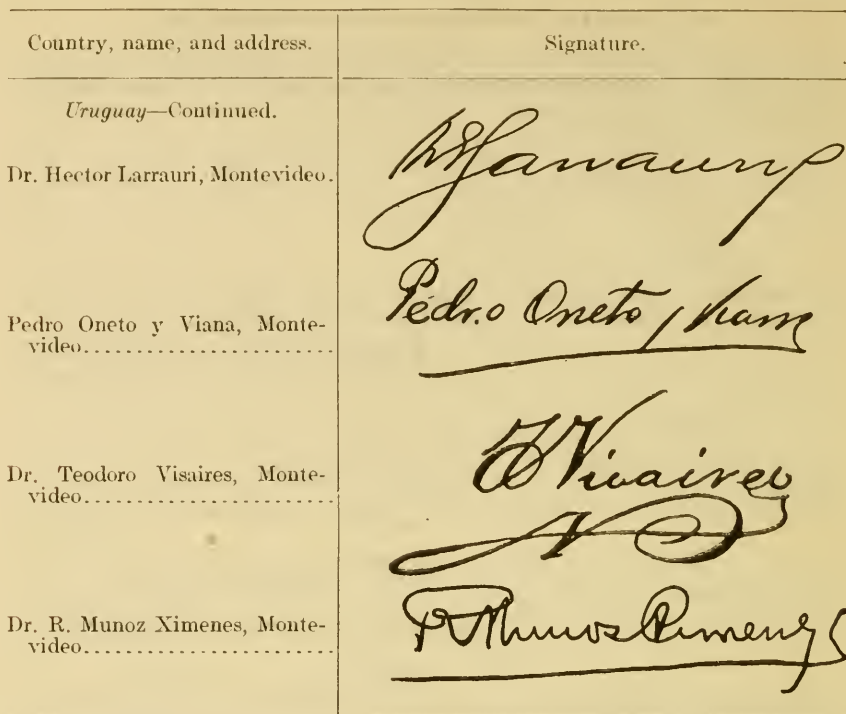 Country, name, and address.
Signature.
Uruguay—Continued.
Dr. Hector Larrauri, Montevideo.
Pedro Oneto y Viana, Monte-
video......................
Pedro Oneto y Viana
Dr. Teodoro Visaires, Monte-
video......................
Dr. R. Munoz Ximenes, Monte-
video......................
R Munoz Ximenez